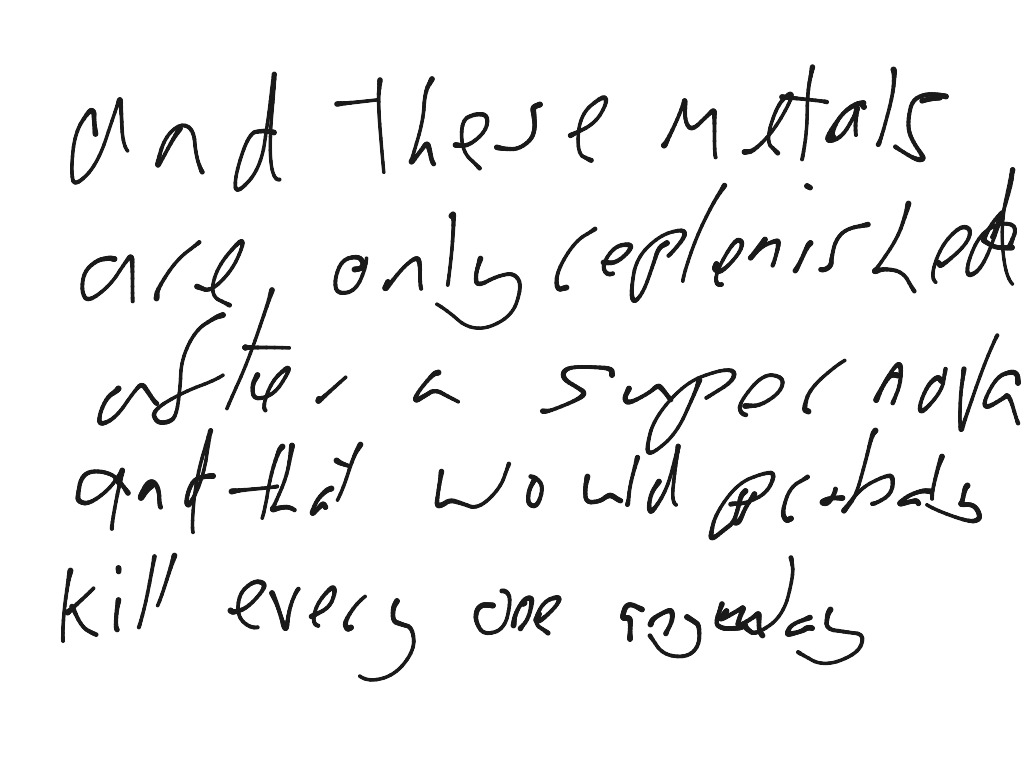 and these metals
are only replenished
after a super nova
and that would probably
kill every one anyway